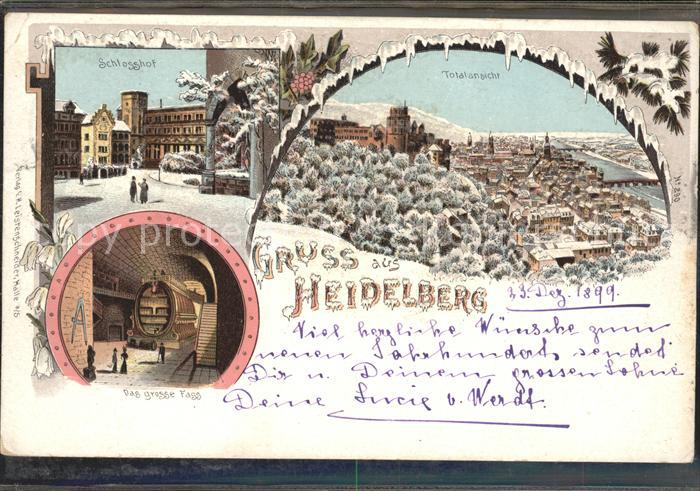 Schlosshof
Totalansicht
No 280
Verlag v. H. Leistenschneider, Halle a/S
GRUSS aus
HEIDELBERG
23. Dez. 1899.
Viel herzliche Wünsche zum
neuen Jahrhundert, sendet
Dir u. Deinem grossen Sohne
Deine Lucie v. Werdt.
Das grosse Fass